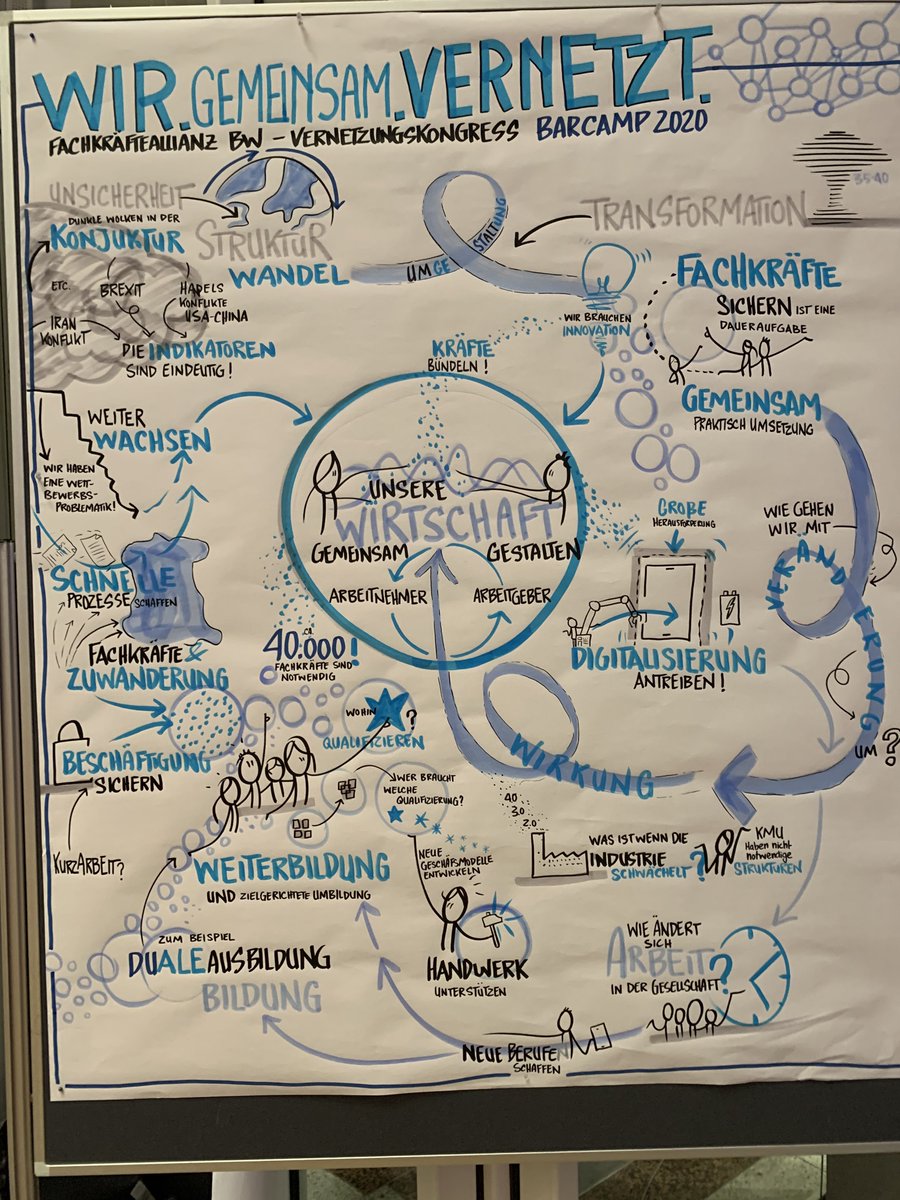 WIR.GEMEINSAM.VERNETZT.
FACHKRÄFTEALLIANZ BW – VERNETZUNGSKONGRESS BARCAMP 2020
35-40
UNSICHERHEIT
DUNKLE WOLKEN IN DER
KONJUKTUR
ETC.
BREXIT
HADELS
KONFLIKTE
USA-CHINA
IRAN
KONFLIKT
DIE INDIKATOREN
SIND EINDEUTIG!
STRUKTUR
WANDEL
UMGESTALTUNG
TRANSFORMATION
WIR BRAUCHEN
INNOVATION
FACHKRÄFTE
SICHERN IST EINE
DAUERAUFGABE
GEMEINSAM
PRAKTISCH UMSETZUNG
KRÄFTE
BÜNDELN!
WEITER
WACHSEN
WIR HABEN
EINE WETT-
BEWERBS-
PROBLEMATIK!
UNSERE
WIRTSCHAFT
GEMEINSAM GESTALTEN
ARBEITNEHMER
ARBEITGEBER
GROßE
HERAUSFORDERUNG
DIGITALISIERUNG
ANTREIBEN!
WIE GEHEN
WIR MIT
VERÄNDERUNG
UM?
SCHNELLE
PROZESSE SCHAFFEN
FACHKRÄFTE &
ZUWANDERUNG
CA.
40.000!
FACHKRÄFTE SIND
NOTWENDIG
BESCHÄFTIGUNG
SICHERN
KURZARBEIT?
WOHIN
QUALIFIZIEREN?
WER BRAUCHT
WELCHE
QUALIFIZIERUNG?
WIRKUNG
4.0
3.0
2.0
WAS IST WENN DIE
INDUSTRIE
SCHWÄCHELT?
KMU
Haben nicht
notwendige
STRUKTUREN
WEITERBILDUNG
UND ZIELGERICHTETE UMBILDUNG
NEUE
GESCHÄFSMODELLE
ENTWICKELN
HANDWERK
UNTERSTÜTZEN
ZUM BEISPIEL
DUALE AUSBILDUNG
BILDUNG
WIE ÄNDERT
SICH
ARBEIT?
IN DER GESELLSCHAFT
NEUE BERUFE
SCHAFFEN